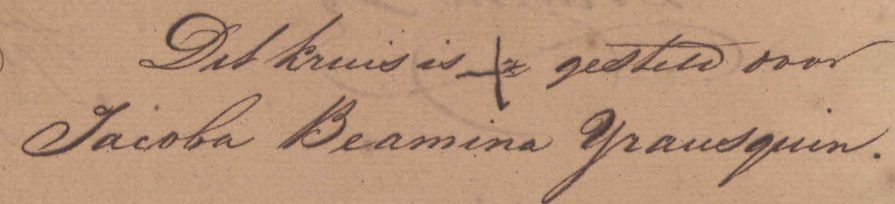 Dit kruis is + gesteld door
Jacoba Beamina Yrausquin.